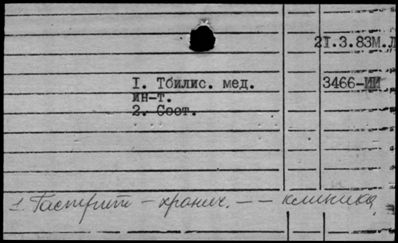 21.3.83М.Л
I. Тбилис. мед. 3466-ИИ
ин-т.
2. Соот.
1. Гастрит - хронич. - - клиника